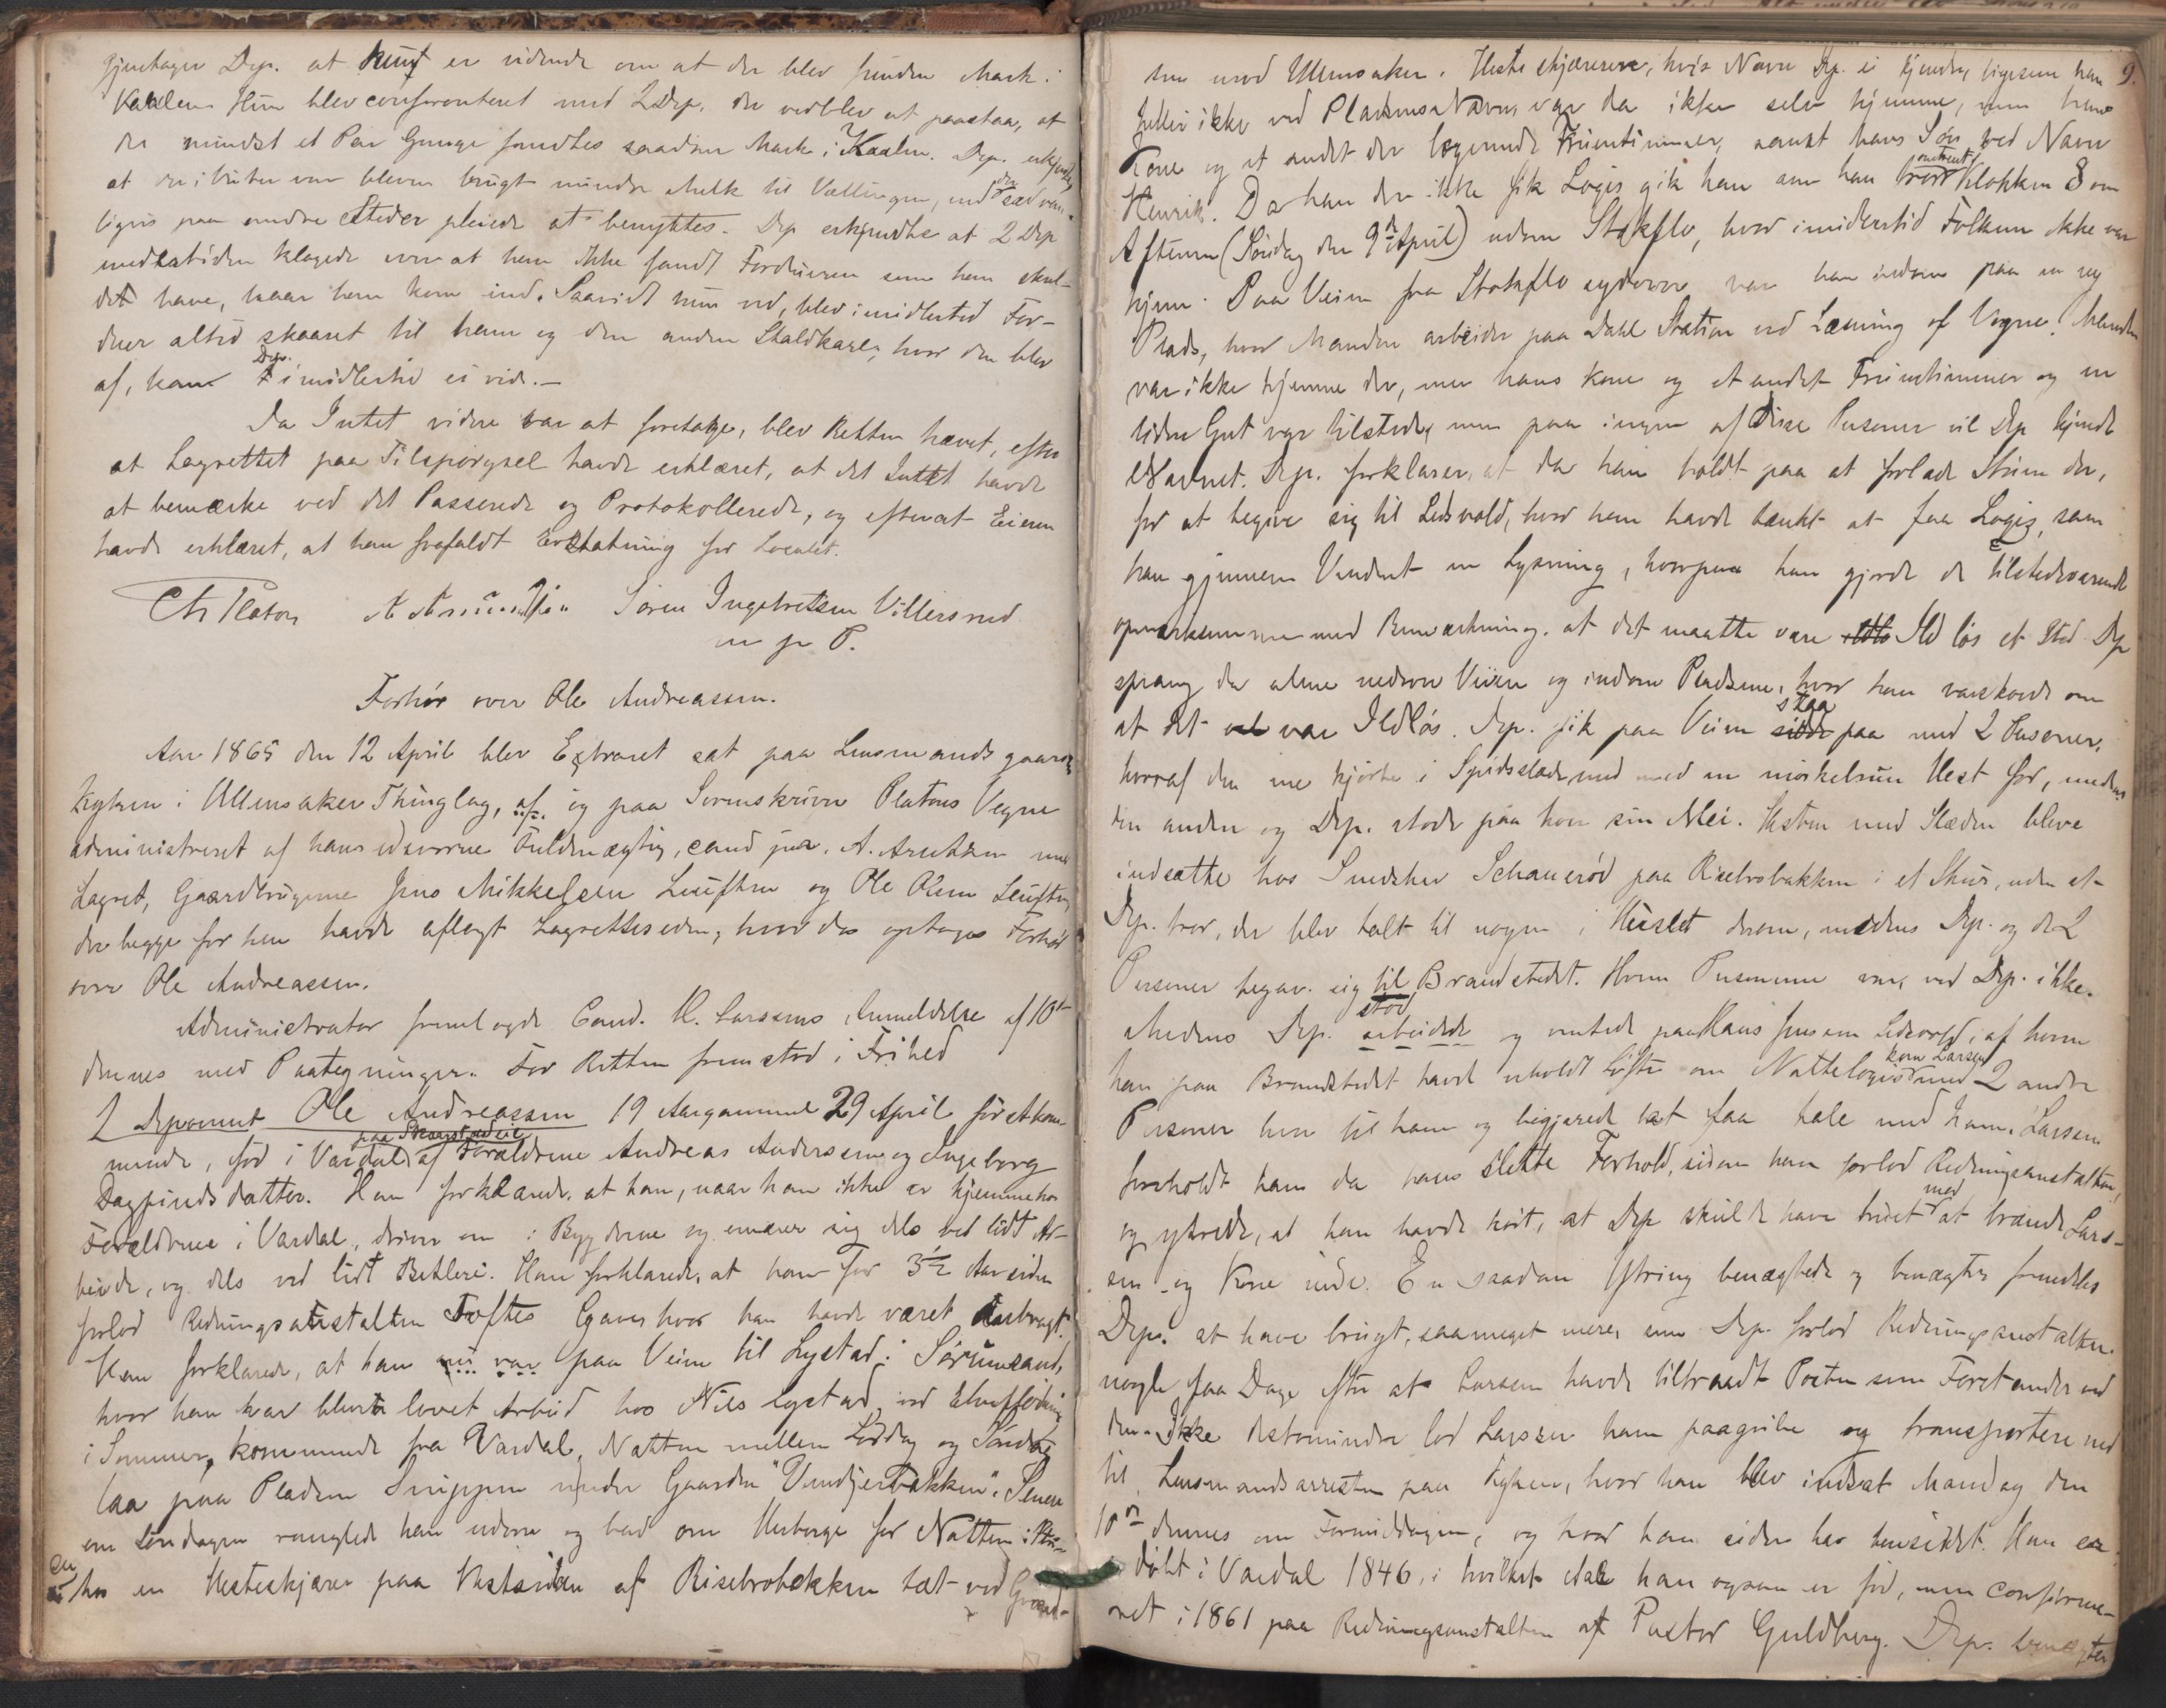 gjentager Dep. at hun er vidende om at der blev funden Mark i
Kaalen. Hun blev confronteret med 2 Dep. der vedblev at paastaa, at
der mindst et Par Gange fandtes saadan Mark i Kaalen. Dep. erkjendte,
at der i buten var bleven brugt mindre Melk til Vællingen, end der sædvan-
ligvis paa andre Steder pleiede at benyttes. Dep erkjendte at 2 Dep
imidlertiden klagede over at han ikke fandt Forduren som han skul-
det have, naar han kom ind. Saavidt hun ved, blev imidlertid For-
duer altid skaaret til ham og den anden Staldkarl, hvor den blev
af, kan Dep. imidlertid ei vide.—
Da Intet videre var at foretage, blev Retten hævet, efter
at Lagrettet paa Tilspørgsel havde erklæret, at det Intet havde
at bemærke ved det Passerede og Protokollerede, og efterat Eieren
havde erklæret, at han frafaldt Erstatning for Localet.
Chr Platou Søren Ingebretsen Villersrud
m p P.
Forhør over Ole Andreassen.
Aar 1865 den 12 April blev Extraret sat paa Lensmandsgaarden
Kyken i Ullensaker Thinglag, af og paa Sorenskriver Platous Vegne
administreret af hans edsvorne Fuldmægtig, cand jur. A. Arntzen med
Lagret, Gaardbrugerne Jens Mikkelsen Leuften og Ole Olsen Leuften
der begge før hen havde aflagt Lagrettesseden, hvor da optoges Forhør
over Ole Andreassen.
Administrator fremlagde Cand. M. Larsens Anmeldelse af 10de
dennes med Paategninger. For Retten fremstod i Frihed
1 Deponent Ole Andreassen 19 Aargammel 29 April førstkom-
paa Skarstadeie
mende, født i Vardal af Forældrene Andreas Andersen og Ingeborg
Dagfindsdatter. Han forklarede, at han, naar han ikke er hjemme hos
Forældrene i Vardal, driver om i Bygderne og ernærer sig dels ved lidt Ar-
beide, og dels ved lidt Betleri. Han forklarede, at han for 3½ Aar siden
forlod Redningsanstalten Toftes Gave, hvor han havde været anbragt.
Han forklarede, at han nu var paa Veien til Lystad i Sørumsand,
hvor han var bleven lovet Arbeid hos Nils Lystad ved
i Sommer, kommende fra Vardal. Natten mellem Lørdag og Søndag
laa paa Pladsen Snippen under Gaarden "Vendjerbakken". Senere
om Søndagen ranglede han udover og bad om Herberge for Natten
hos en Hesteskjærer paa Vestsiden af Risebrobakken tæt ved
9.
sen mod Ullensaker. Hesteskjæreren, hvis Navn Dep. ei kjender, ligesom han
heller ikke ved Pladsens Navn, var da ikke selv hjemme, men hans
Kone og et andet der logerende Fruentimmer, samt hans Søn ved Navn
Henrik. Da han der ikke fik Logis gik han som han tror omtrent Klokken 8 om
Aftenen (Søndag den 9de April) udom Stokflo, hvor imidlertid Folkene ikke var
hjemme. Paa Veien fra Stokflo sydover var han indom paa en ny
Plads, hvor Manden arbeider paa Dahl Station ved Læsning af Vogne. Manden
var ikke hjemme der, men hans Kone og et andet Fruentimmer og en
liden Gut var tilstede, men paa ingen af disse Personer vil Dep kjende
Navnet. Dep. forklarer, at da han holdt paa at forlade Stuen der,
for at begive sig til Ledsvold, hvor han havde tænkt at faa Logis, saa
han gjennem Vinduet en Lysning, hvorpaa han gjorde de tilstedeværende
opmærksomme med Bemærkning, at det maatte være Ild løs et Sted. Dep
sprang da alene nedover Veien og indom Pladsene, hvor han varskoede om
at det var Ildløs. Dep. fik paa Veien staa paa med 2 Personer,
hvoraf den ene kjørte i Spidsslæde med en mørkebrun Hest for, medens
den anden og Dep. stode paa hver sin Mei. Hesten med Slæden bleve
indsatte hos Smedshu Schauerød paa Risebrobakken i et Skur, uden at
Dep. tror, der blev talt til nogen i Huset derom, medens Dep. og de 2
Personer begav sig til Brandstedet. Hvem Personerne var, ved Dep. ikke.
Medens Dep. arbeidede stod og ventede paa Hans Jensen Ledsvold, af hvem
han paa Brandstedet havde erholdt Løfte om Nattelogis kom Larsen med 2 andre
Personer hen til ham og begjærede at faa tale med ham. Larsen
foreholdt ham da hans slette Forhold, siden han forlod Redningsanstalten,
og ytrede, at han havde hørt, at Dep skulde have truet med at brænde Lars-
sen og Kone inde. En saadan Ytring benægtede og benægter fremdeles
Dep. at have brugt, saameget mere, som Dep. forlod Redningsanstalten
nogle faa Dage efter at Larsen havde tiltraadt Posten som Forstander ved
den. Ikke destomindre lod Larssen ham paagribe og transportere ned
til Lensmandsarresten paa Kyken, hvor han blev indsat Mandag den
10de dennes om Formiddagen, og hvor han siden har henseddet. Han er
døbt i Vardal 1846, i hvilket Aar han ogsaa er født, men confirme-
ret i 1861 paa Redningsanstalten af Pastor Guldberg. Dep. benægter